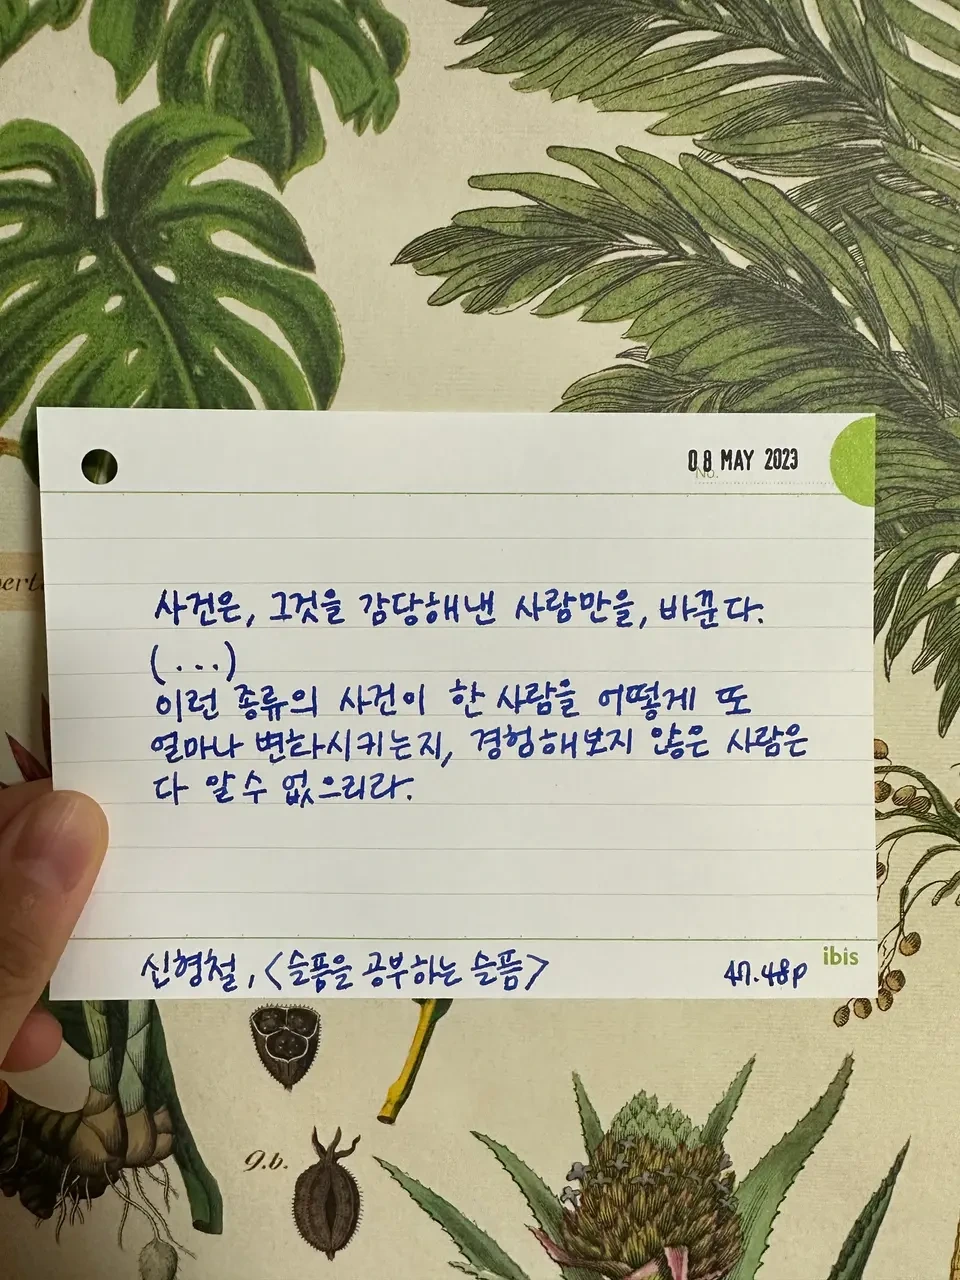 08 MAY 2023
No.
사건은, 그것을 감당해낸 사람만을, 바꾼다.
(...)
이런 종류의 사건이 한 사람을 어떻게 또
얼마나 변화시키는지, 경험해보지 않은 사람은
다 알 수 없으리라.
신형철, <슬픔을 공부하는 슬픔>
47.48p
ibis
g.b.